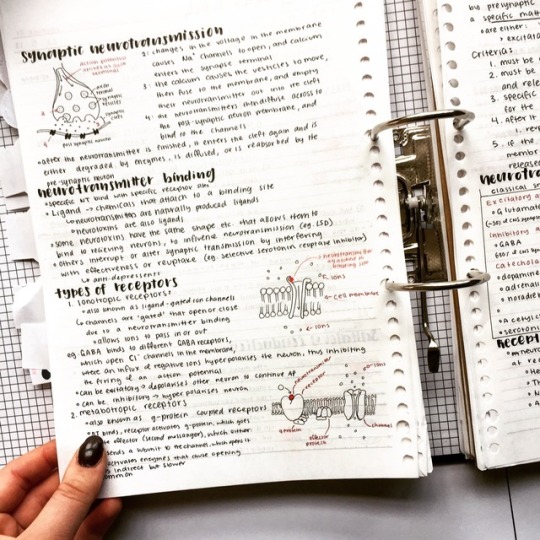 synaptic neurotransmission
action potential
arrives at axon
terminals
axon
terminal
synaptic
vesicles
synaptic
cleft
post synaptic neuron
2: changes in the voltage in the membrane
causes Na+ channels to open, and calcium
enters the synapse terminal
3: the calcium causes the vesicles to move,
then fuse to the membrane, and empty
their neurotransmitter out into the cleft
4: the neurotransmitters then diffuse across to
the post-synaptic neuron membrane, and
bind to the channels
• after the neurotransmitter is finished, it enters the cleft again and is
either degraded by enzymes, is diffused, or is reabsorbed by the
pre-synaptic neuron
neurotransmitter binding
• specific N/T bind with specific receptor sites
• Ligand → chemicals that attach to a binding site
↳ neurotransmitters are naturally produced ligands
• neurotoxins are also ligands
• some neurotoxins have the same shape etc. that allows them to
bind to receiving neurons, to influence neurotransmission (eg. LSD)
• others interrupt or alter synaptic transmission by interfering
with effectiveness or reuptake (eg. selective serotonin reuptake inhibitor)
↳ anti-depressents
types of receptors
1. ionotropic receptors:
• also known as ligand-gated ion channels
↳ channels are 'gated' that open or close
due to a neurotransmitter binding
• allows ions to pass in or out
eg. GABA binds to different GABA receptors,
which open Cl- channels in the membrane,
where an influx of negative ions hyperpolarises the neuron, thus inhibiting
the firing of an action potential
• can be excitatory → depolarises other neuron to continue AP
• can be inhibitory → hyperpolarises neuron
neurotransmitter
attached to
binding site
← ions
← cell membrane
← ions
2. metabotropic receptors
• also known as g-protein coupled receptors
NT binds, receptor activates g-protein, which goes
effector (second messanger), which either:
sends a subunit to the channel, which opens it
activates enzymes that cause opening
indirect but slower
common
neurotransmitter
receptor
ions
g-protein
effector
protein
channel
by presynaptic
a specific
• are either:
• excitator
Criteria:
1. must be
2. must be
and
3. specific
for the
4. after it
5. if the
membr
release
neurotr
classical
Excitatory
• Glutamate
Inhibitory
• GABA
Catechola
• dopamine
• adrenali
• noradre
• acetylc
• serotoni
recept